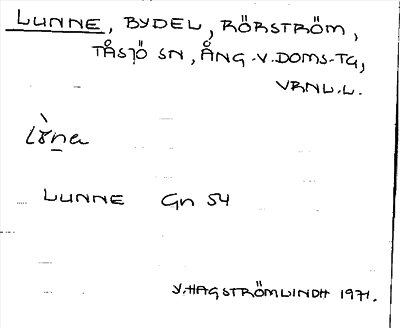 LUNNE, BYDEL, RÖRSTRÖM,
TÅSJÖ SN, ÅNG.V.DOMS-TG,
VRNL.L.
LUNNE Gn 54
V.HAGSTRÖMLINDH 1971.